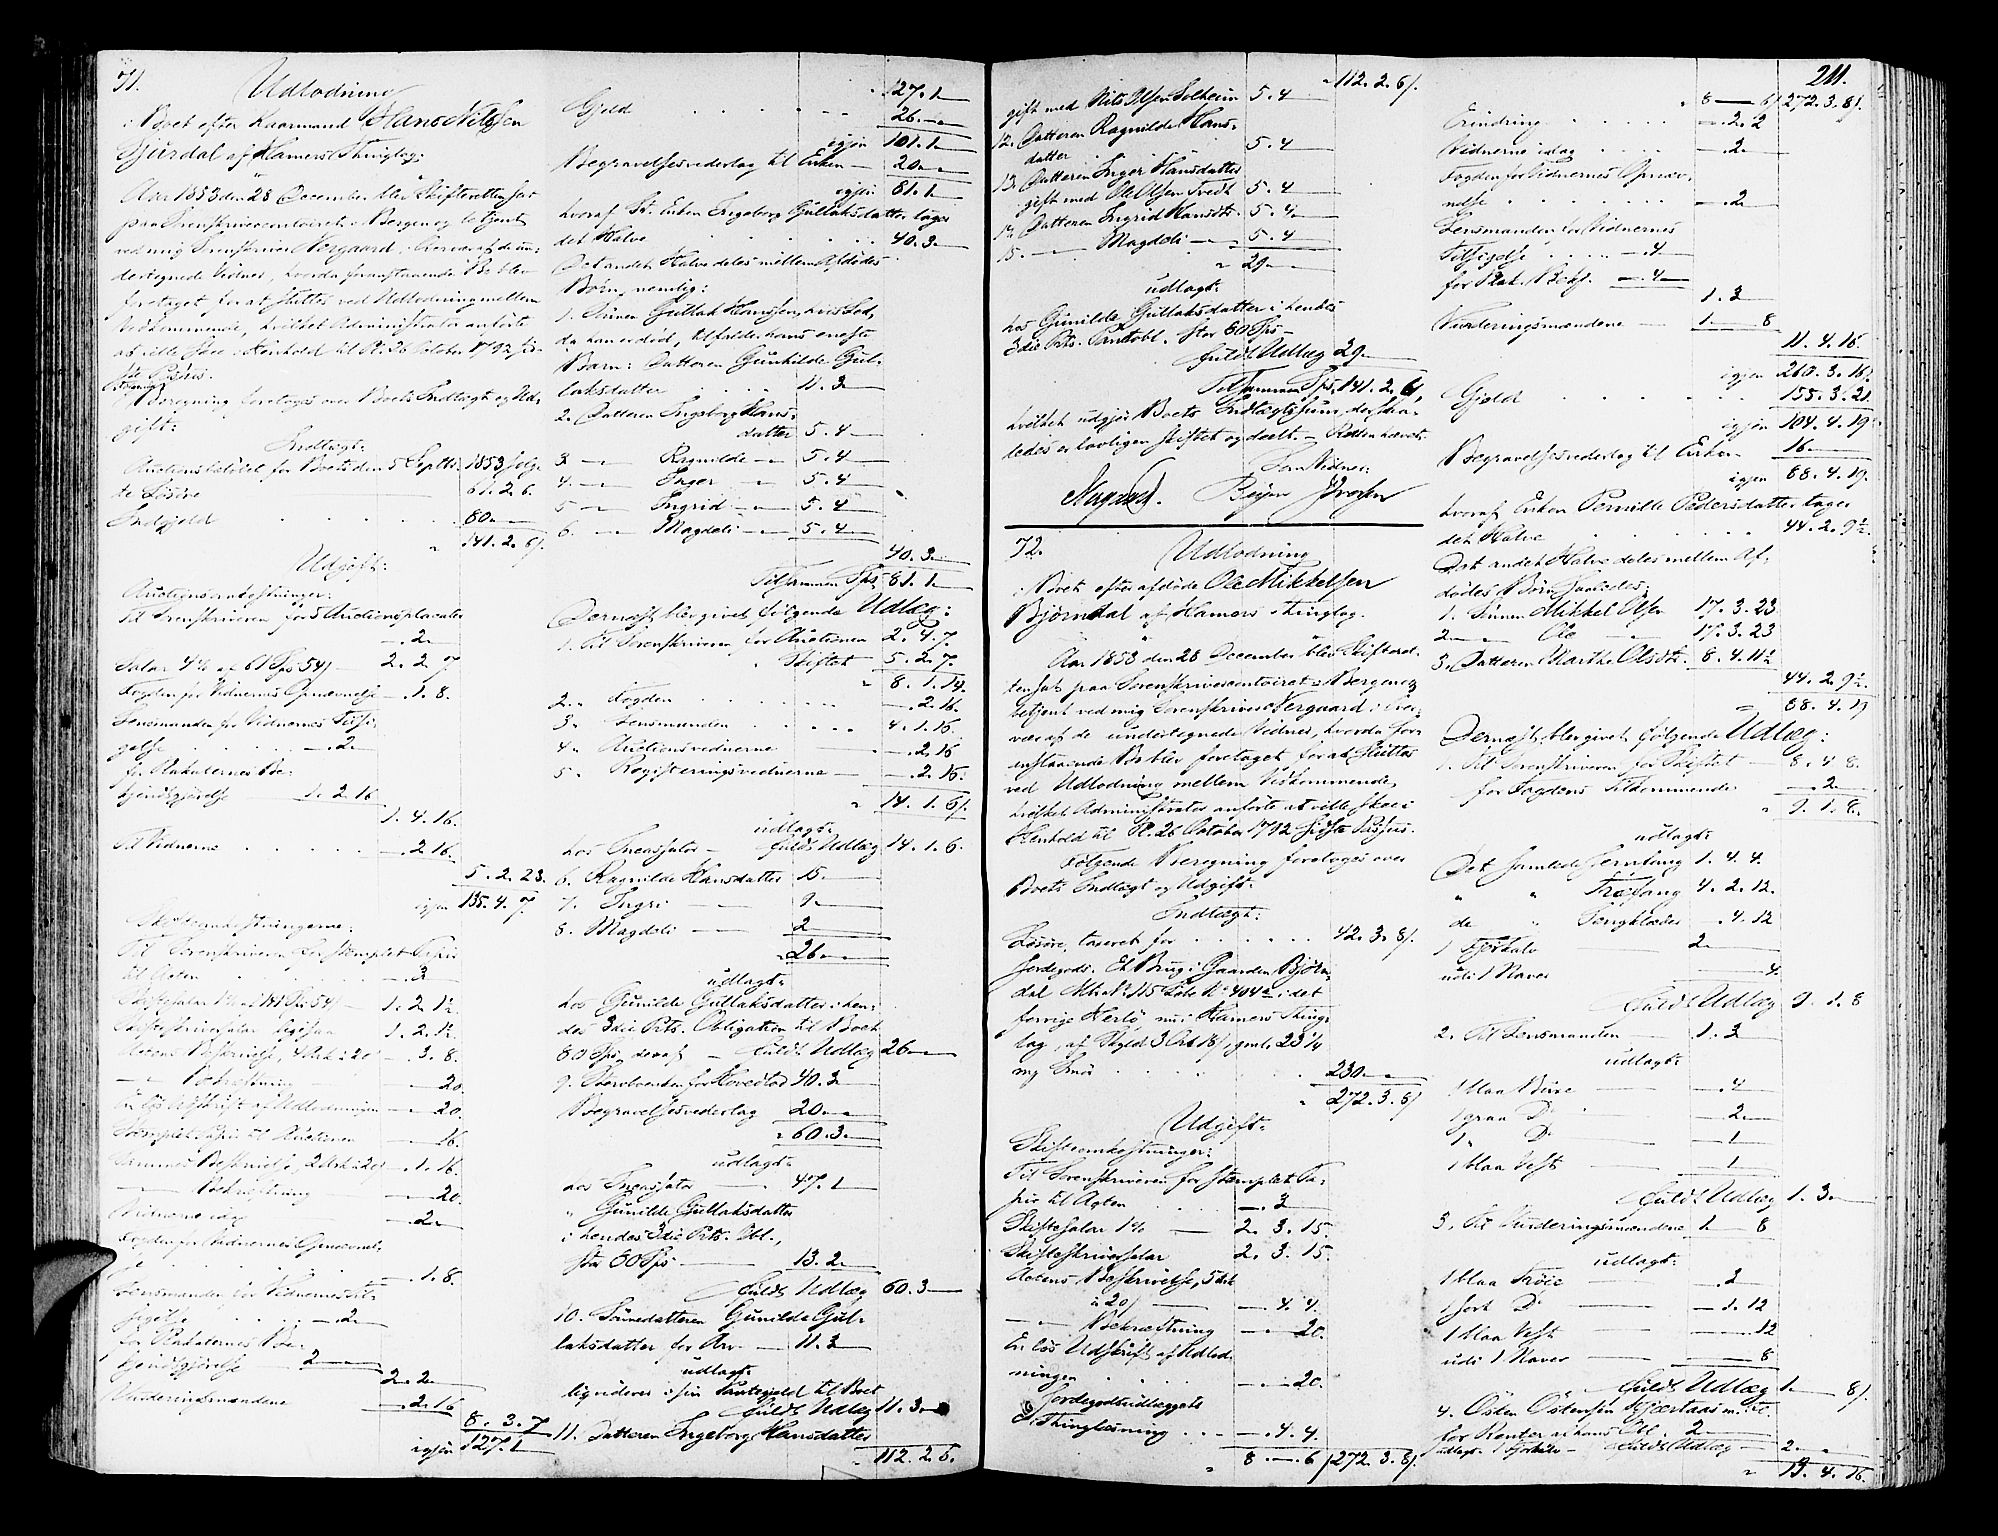 71.
Udlodning
i Boet efter Kaarmand Hans Nilssen
Gjürdal af Hamers Thinglag:
Aar 1853 den 28 December blev Skifteretten sat
paa Sorenskrivercontoiret i Bergen og betjent
ved mig Sorenskriver Norgaard i Overvær af de un-
dertegnede Vidner, hvorda foranstaaende Bo blev
foretaget for at sluttes ved Udlodning mellem
Vedkommende, hvilket Administrator anførte
at ville skee i Henhold til Pl. 26 October 1792 sid-
ste Passus.
Følgende
Beregning foretages over Boets Indtægt og Ud-
gift:
Indtægt:
Auctionsbeløbet for Boets den 5 Septbr. 1853 solg-
te Løsøre 61. 2. 6.
Indgjeld 80.—
" 141. 2. 6.
Udgift:
Auctionsomkostninger:
Til Sorenskriveren for 5 Auctionsplacater
—. 2.—
Salar 4% af 61 Spd 54 2. 2. 7
Fogden for Vidnernes Opnævnelse —. 1. 8.
Lensmanden for Vidnernes Tilsi-
gelse —. 2.—
for Plakaternes Be-
kjendtgjørelse 1. 2. 16
1. 4. 16.
Til Vidnerne —. 2. 16.
5. 2. 23.
igjen 135. 4. 7.
Skifteomkostningerne:
Til Sorenskriveren for stemplet Papir
til Acten —. 3
Skiftesalar 1% af 141 Spd 54 1. 2. 1½
Skifteskriversalar ligesaa 1. 2. 1½
Actens Beskrivelse, 4 Ark à 20 —. 3. 8.
—"— Bekræftning —. 20.
En løs Udskrift af Udlodningen —. 20.
Stemplet Papir til Auctionen —. 16.
Sammes Beskrivelse, 2 Ark à 20 —. 1. 16.
—"— Bekræftning —. 20.
Vidnerne idag —. 2.—
Fogden for Vidnernes Opnævnel-
se —. 1. 8.
Lensmanden for Vidnernes Til-
sigelse —. 2.—
for Plakaternes Be-
kjendtgjørelse 2.—
2. 2.—
Vurderingsmændene —. 2. 16
8. 3. 7
igjen 127. 1—
" 127. 1—
Gjeld 26.—
igjen 101. 1—
Begravelsesvederlag til Enken — 20.—
igjen 81. 1—
hvoraf Enken Ingeborg Gullaksdatter tager
det Halve 40. 3.—
Det andet Halve deles mellem Afdødes
Børn, nemlig:
1. Sønnen Gullak Hanssen, hvis Lod,
da han er død, tilfalder hans eneste
Barn: Datteren Gunhilde Gul-
laksdatter 11. 3—
2. Datteren Ingeborg Hans-
datter 5. 4—
3. —"— Ragnilde —"— 5. 4—
4. —"— Inger —"— 5. 4—
5 —"— Ingrid —"— 5. 4—
6. —"— Magdeli —"— 5. 4—
40. 3.—
Tilsammen Spd 81. 1—
Dernæst blev givet følgende Udlæg:
1. Til Sorenskriveren for Auctionen 2. 4. 7.
" Skiftet 5. 2. 7.
" 8. 1. 14.
2. " Fogden —. 2. 16.
3. " Lensmanden 4. 1. 16.
4. " Auctionsvidnerne —. 2. 16
5. " Registreringsvidnerne — —. 2. 16.
" 14. 1. 6.
udlagt:
hos Incassator — fuldt Udlæg 14. 1. 6.
6. Ragnilde Hansdatter 15.—
7. Ingri —"— 9.—
8. Magdeli —"— 2—
" 26.—
udlagt:
hos Gunilde Gullaksdatter i hen-
des 3die Prts. Obligation til Boet
80 Spd, deraf — fuldt Udlæg 26—
9. Sterboenken for Hovedlod 40. 3—
Begravelsesvederlag 20—
" 60. 3—
udlagt:
hos Incassator 47. 1
" Gunilde Gullaksdatter
i hendes 3die Prts. Obl.,
stor 80 Spd — 13. 2.—
fuldt Udlæg 60. 3—
10. Sønnedatteren Gunilde Gul-
laksdatter for Arv — 11. 3
udlagt:
liqviderer i sin Pantegjeld til Boet
fuldt Udlæg 11. 3.—
11. Datteren Ingeborg Hansdatter
" 112. 2. 6.
" 112. 2. 6
gift med Nils Olsen Solheim 5. 4
12. Datteren Ragnilde Hans-
datter 5. 4
13. Datteren Inger Hansdatter
gift med Ole Olsen Tvedt 5. 4—
14. Datteren Ingrid Hansdtr. 5. 4—
15. —"— Magdeli —"— 5. 4—
" 29.—
udlagt:
hos Gunilde Gullaksdatter i hendes
3die Prts. Pantobl. stor 80 Spd —
fuldt Udlæg 29.—
Tilsammen Spd 141. 2. 6,
hvilket udgjør Boets Indtægtssum, der saa-
ledes er lovligen skiftet og deelt. — Retten hævet.
Som Vidner:
Norgaard. Iversen
72.
Udlodning
i Boet efter afdøde Ole Mikkelsen
Bjørndal af Hamers Thinglag.
Aar 1853 den 28 December blev Skifteret-
ten sat paa Sorenskrivercontoiret i Bergen og
betjent ved mig Sorenskriver Norgaard i Over-
vær af de undertegnede Vidner, hvorda for-
anstaaende Bo blev foretaget for at sluttes
ved Udlodning mellem Vedkommende,
hvilket Administrator anførte at ville skee i
Henhold til Pl. 26 October 1792 sidste Passus.
Følgende Beregning foretages over
Boets Indtægt og Udgift:
Indtægt:
Løsøre, taxeret for 42. 3. 8
Jordegods. Et Brug i Gaarden Bjørn-
dal Mtr. N° 115 Løbe N° 404a i det
forrige Herlø nu i Hamers Thing-
lag, af Skyld 3 Ort 18, gml. 23 1/4
mg Smør 230.—
" 272. 3. 8
Udgift:
Skifteomkostninger:
Til Sorenskriveren for stemplet Pa-
pir til Acten —. 3
Skiftesalar 1% 2. 3. 15.
Skifteskriversalar 2. 3. 15.
Actens Beskrivelse, 5 Ark
à 20 — —. 4. 4.
—"— Bekræftning —. 20.
En løs Udskrift af Udlod-
ningen —. 20.
Jordegodsudlæggets
Thinglæsning —. 4. 4.
" 8 —. 6 272. 3. 8.
211.
" 8 — 6 272. 3. 8.
Erindring —. 2. 2
Vidnerne idag —. 2.
Fogden for Vidnernes Opnæv-
nelse —. 2
Lensmanden for Vidnernes
Tilsigelse —. 4—
for Plak. Bekj. —. 4—
1. 3
Vurderingsmændene — 1.— 8
11. 4. 16.
igjen 260. 3. 16.
Gjeld 155. 3. 21.
igjen 104. 4. 19.
Begravelsesvederlag til Enken 16.—
igjen 88. 4. 19.
hvoraf Enken Pernille Pedersdatter tager
det Halve 44. 2. 9½.
Det andet Halve deles mellem Af-
dødes Børn saaledes:
1. Sønnen Mikkel Olsen 17. 3. 23
2. —"— Ole —"— 17. 3. 23
3. Datteren Marthe Olsdtr. 8. 4. 11½
44. 2. 9½.
" 88. 4. 19
Dernæst blev givet følgende Udlæg:
1. Til Sorenskriveren for Skiftet 8. 4. 8.
for Fogdens Tilkommende —. 2.—
" 9. 1. 8.
udlagt:
Det samlede Jernfang 1. 4. 4.
" " Træfang 4. 2. 12.
de " Sengklæder —. 4. 12
1 2.—
udi 1 Naver 4.
fuldt Udlæg 9. 1. 8
2. Til Lensmanden — 1. 3
udlagt:
1 blaa Buxe —. 4—
1 graa D° —. 2—
1 " D° —. 1
1 blaa Vest —. 1
fuldt Udlæg 1. 3.—
3. Til Vurderingsmændene 1— 8
udlagt:
1 blaa Trøie —. 2
1 sort D° —. 1. 12
1 blaa Vest —. 12
udi 1 Naver 8
fuldt Udlæg 1. — 8
4. Osten Ostensen
for Renter af hans Obl. 2—
udlagt. fuldt Udlæg 2.—
" 13. 4. 16.